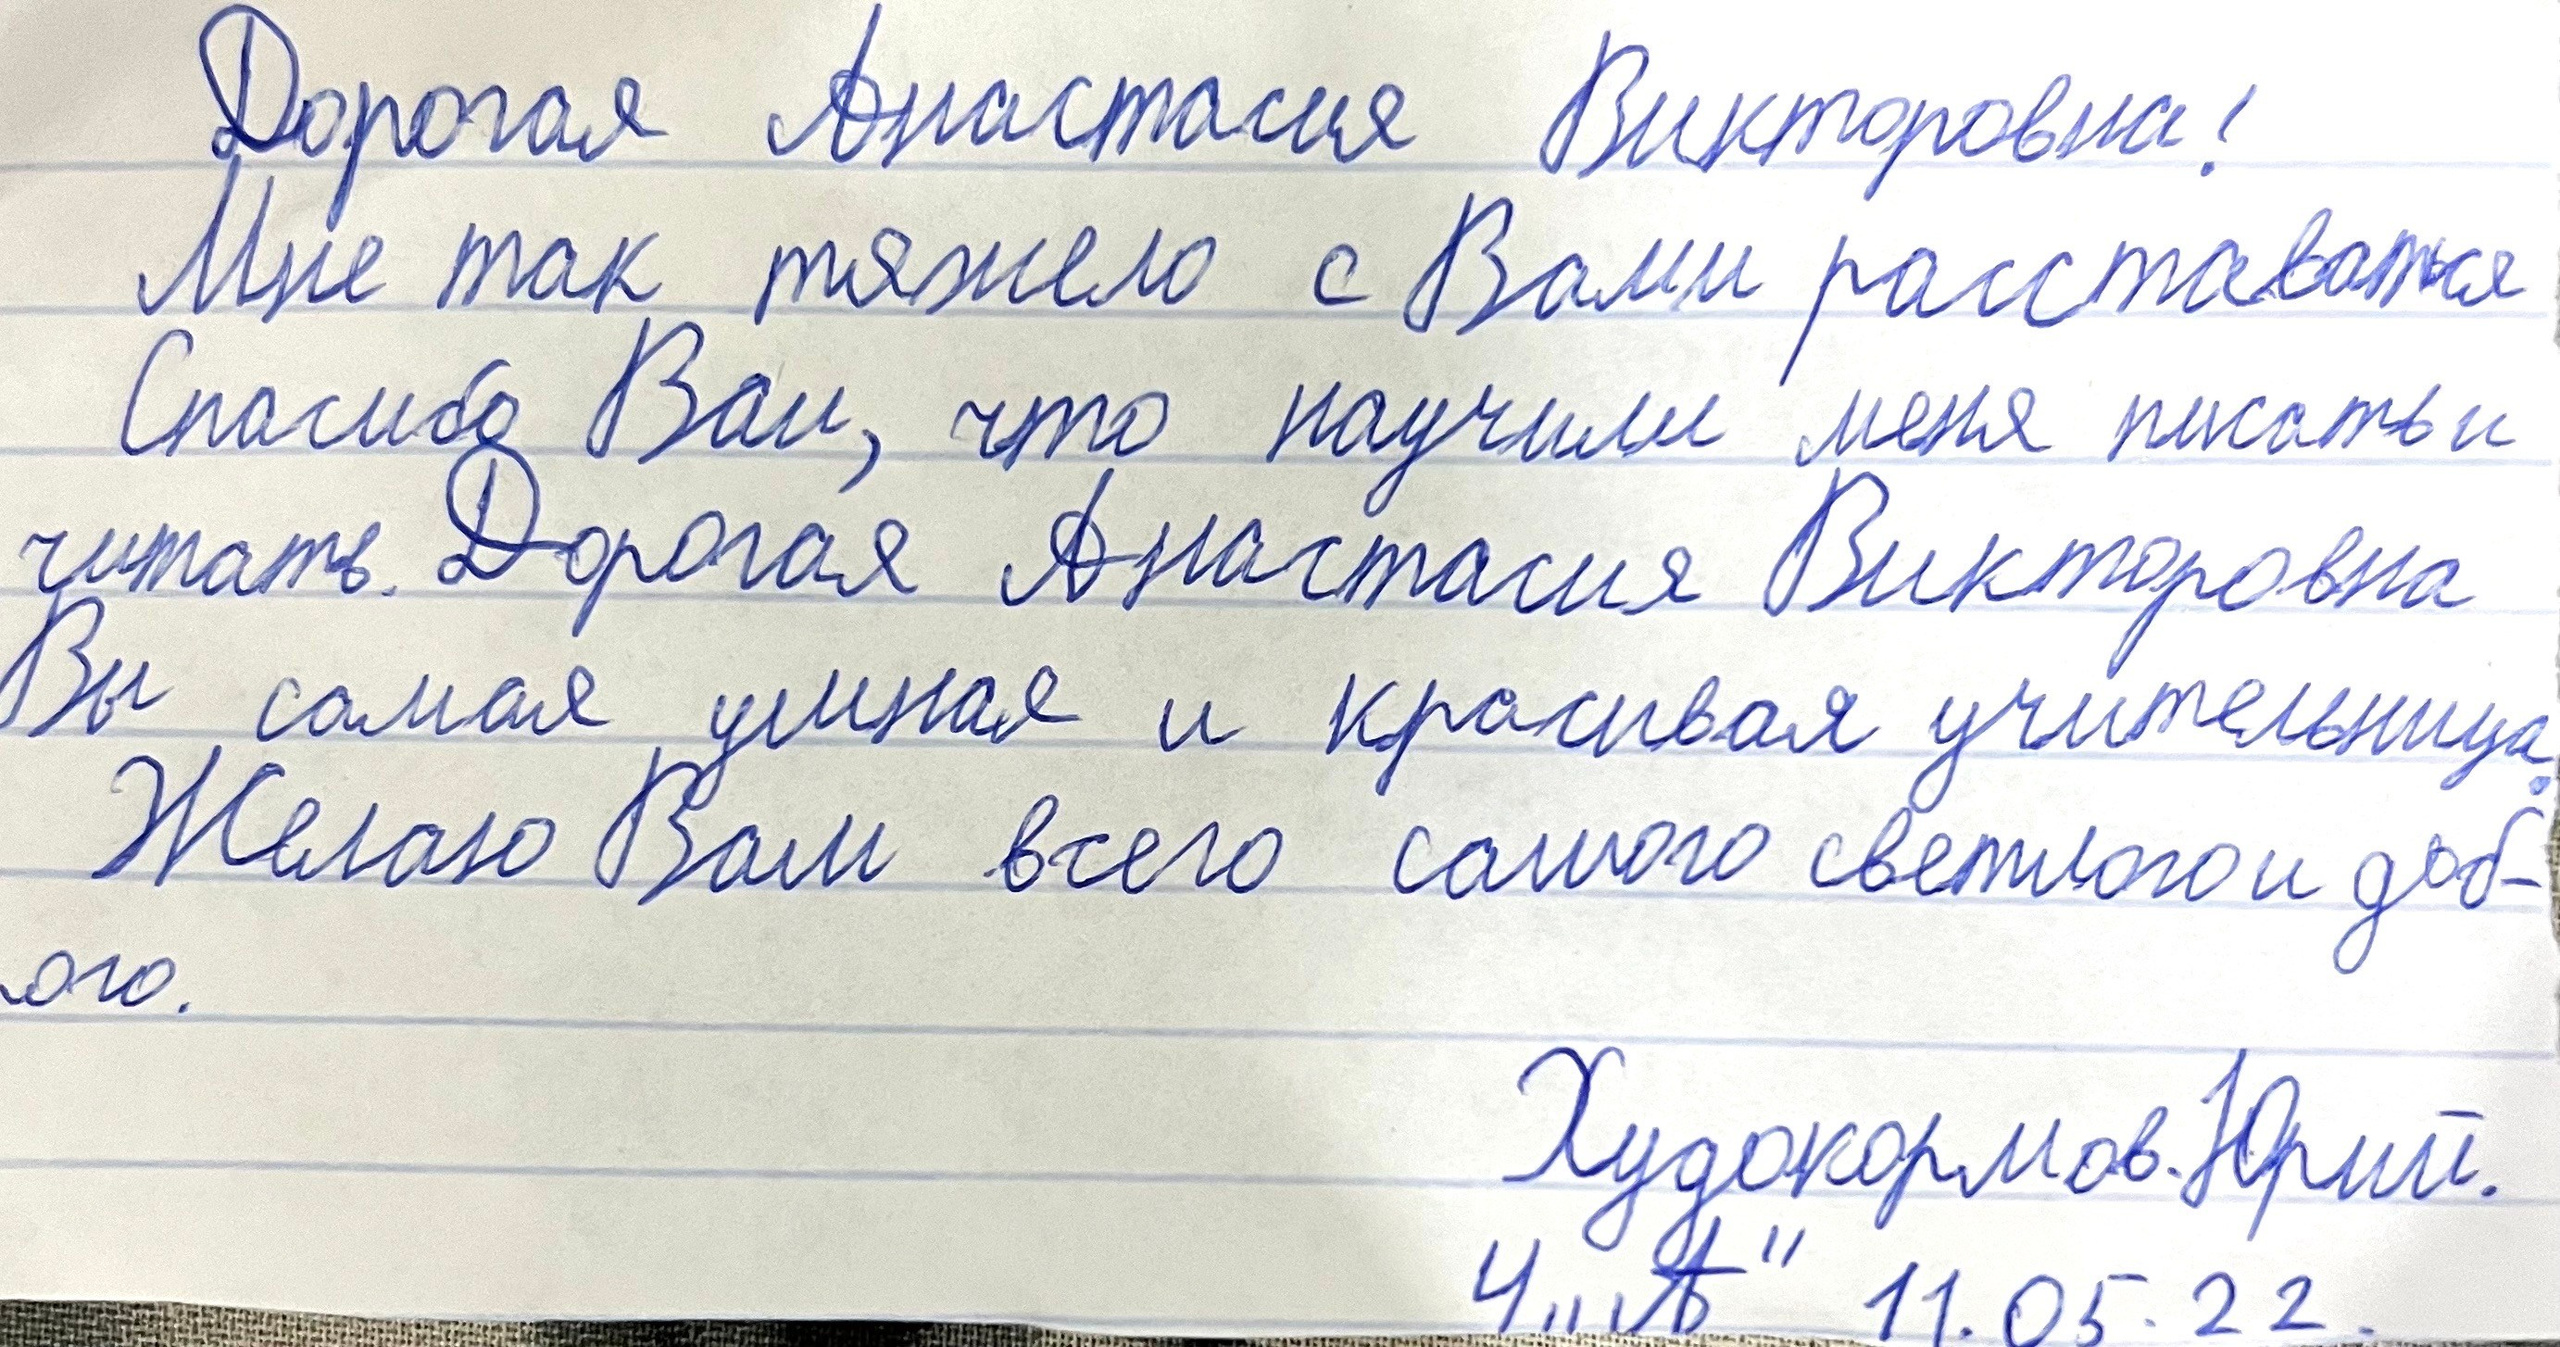 Дорогая Анастасия Викторовна!
Мне так тяжело с Вами расставаться
Спасибо Вам, что научили меня писать и
читать. Дорогая Анастасия Викторовна
Вы самая умная и красивая учительница.
Желаю Вам всего самого светлого и доб-
рого.
Худокормов. Юрий.
4 „А" 11.05.22.